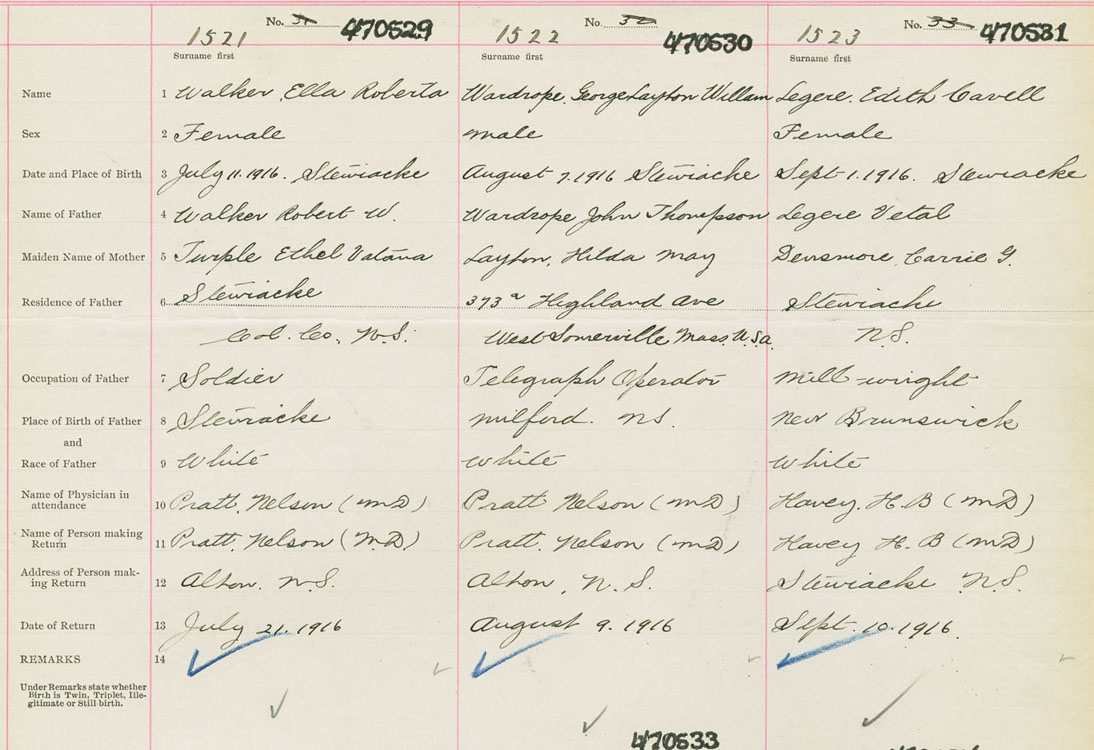 No. 31 470529 No. 32 470530 No. 33 470531
1521 1522 1523
Surname first Surname first Surname first
Name 1 Walker, Ella Roberta Wardrope, George Layton William Legere, Edith Cavell
Sex 2 Female male Female
Date and Place of Birth 3 July 11. 1916. Stewiacke August 7. 1916 Stewiacke Sept 1. 1916. Stewiacke
Name of Father 4 Walker Robert W. Wardrope John Thompson Legere Vetal
Maiden Name of Mother 5 Turple Ethel Vatana Layton, Hilda may Densmore, Carrie G.
Residence of Father 6 Stewiacke 373 a Highland Ave Stewiacke
Col. Co, N.S. West Somerville Mass. U.S.a. N.S.
Occupation of Father 7 Soldier Telegraph Operator mill-wright
Place of Birth of Father 8 Stewiacke milford. NS. New Brunswick
and
Race of Father 9 White white white
Name of Physician in
attendance 10 Pratt, Nelson (MD) Pratt Nelson (MD) Havey, H. B (MD)
Name of Person making
Return 11 Pratt, Nelson (M.D) Pratt, Nelson (MD) Havey H. B (MD)
Address of Person mak-
ing Return 12 Alton. N.S. Alton, N. S. Stewiacke N.S.
Date of Return 13 July 21. 1916 August 9. 1916 Sept. 10. 1916.
REMARKS 14
Under Remarks state whether
Birth is Twin, Triplet, Ille-
gitimate or Still birth.
470533